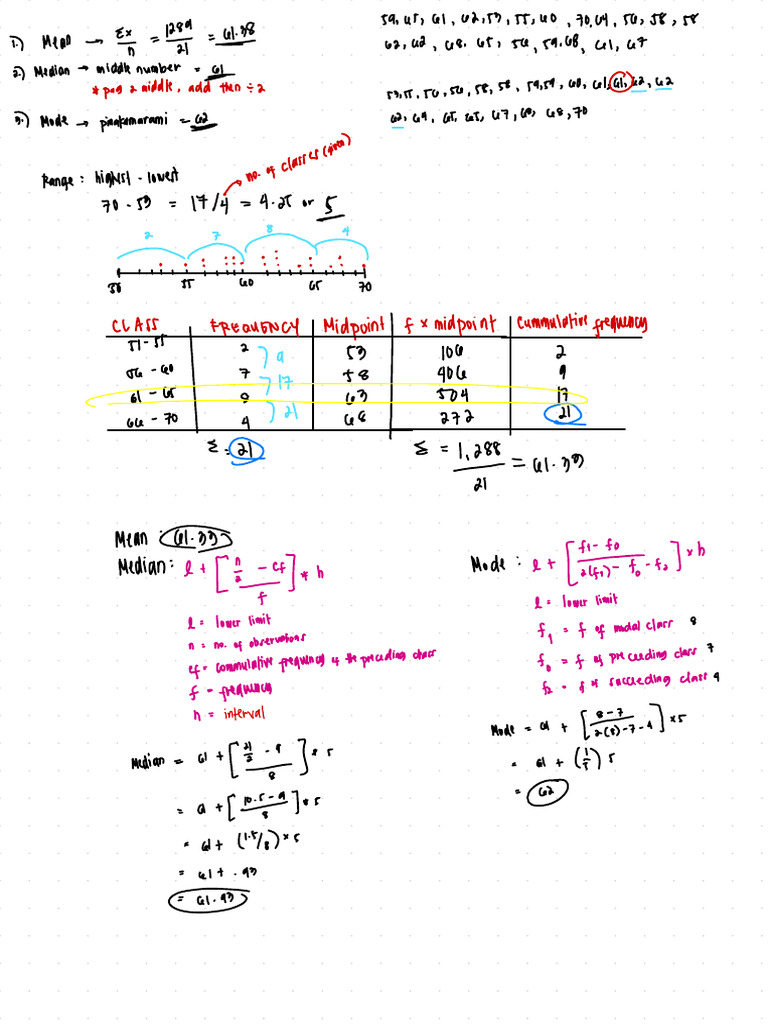 1.) Mean → Σx/n = 1289/21 = 61.38
2.) Median → middle number = 61
* pag 2 middle, add then ÷ 2
3.) Mode → pinakamarami = 62
59, 65, 61, 62, 53, 55, 60, 70, 64, 56, 58, 58
62, 62, 68, 65, 56, 59, 68, 61, 67
53, 55, 56, 56, 58, 58, 59, 59, 60, 61, 61, 62, 62
62, 64, 65, 65, 67, 68, 68, 70
Range: highest - lowest
no. of classes (given)
70 - 53 = 17/4 = 4.25 or 5
2 7 8 4
50 55 60 65 70
CLASS FREQUENCY Midpoint f x midpoint Cummulative frequency
51 - 55 2 53 106 2
56 - 60 7 58 406 9
61 - 65 8 63 504 17
66 - 70 4 68 272 21
9
17
21
Σ = 21 Σ = 1,288/21 = 61.33
Mean: 61.33
Median: l + [n/2 - cf / f] * h
l = lower limit
n = no. of observations
cf = commulative frequency of the preceding class
f = frequency
h = interval
Median = 61 + [21/2 - 9 / 8] * 5
= 61 + [10.5 - 9 / 8] * 5
= 61 + (1.5/8) * 5
= 61 + .93
= 61.93
Mode: l + [f1 - f0 / 2(f1) - f0 - f2] x h
l = lower limit
f1 = f of modal class 8
f0 = f of preceeding class 7
f2 = f of succeeding class 4
Mode = 61 + [8 - 7 / 2(8) - 7 - 4] x 5
= 61 + (1/5) 5
= 62